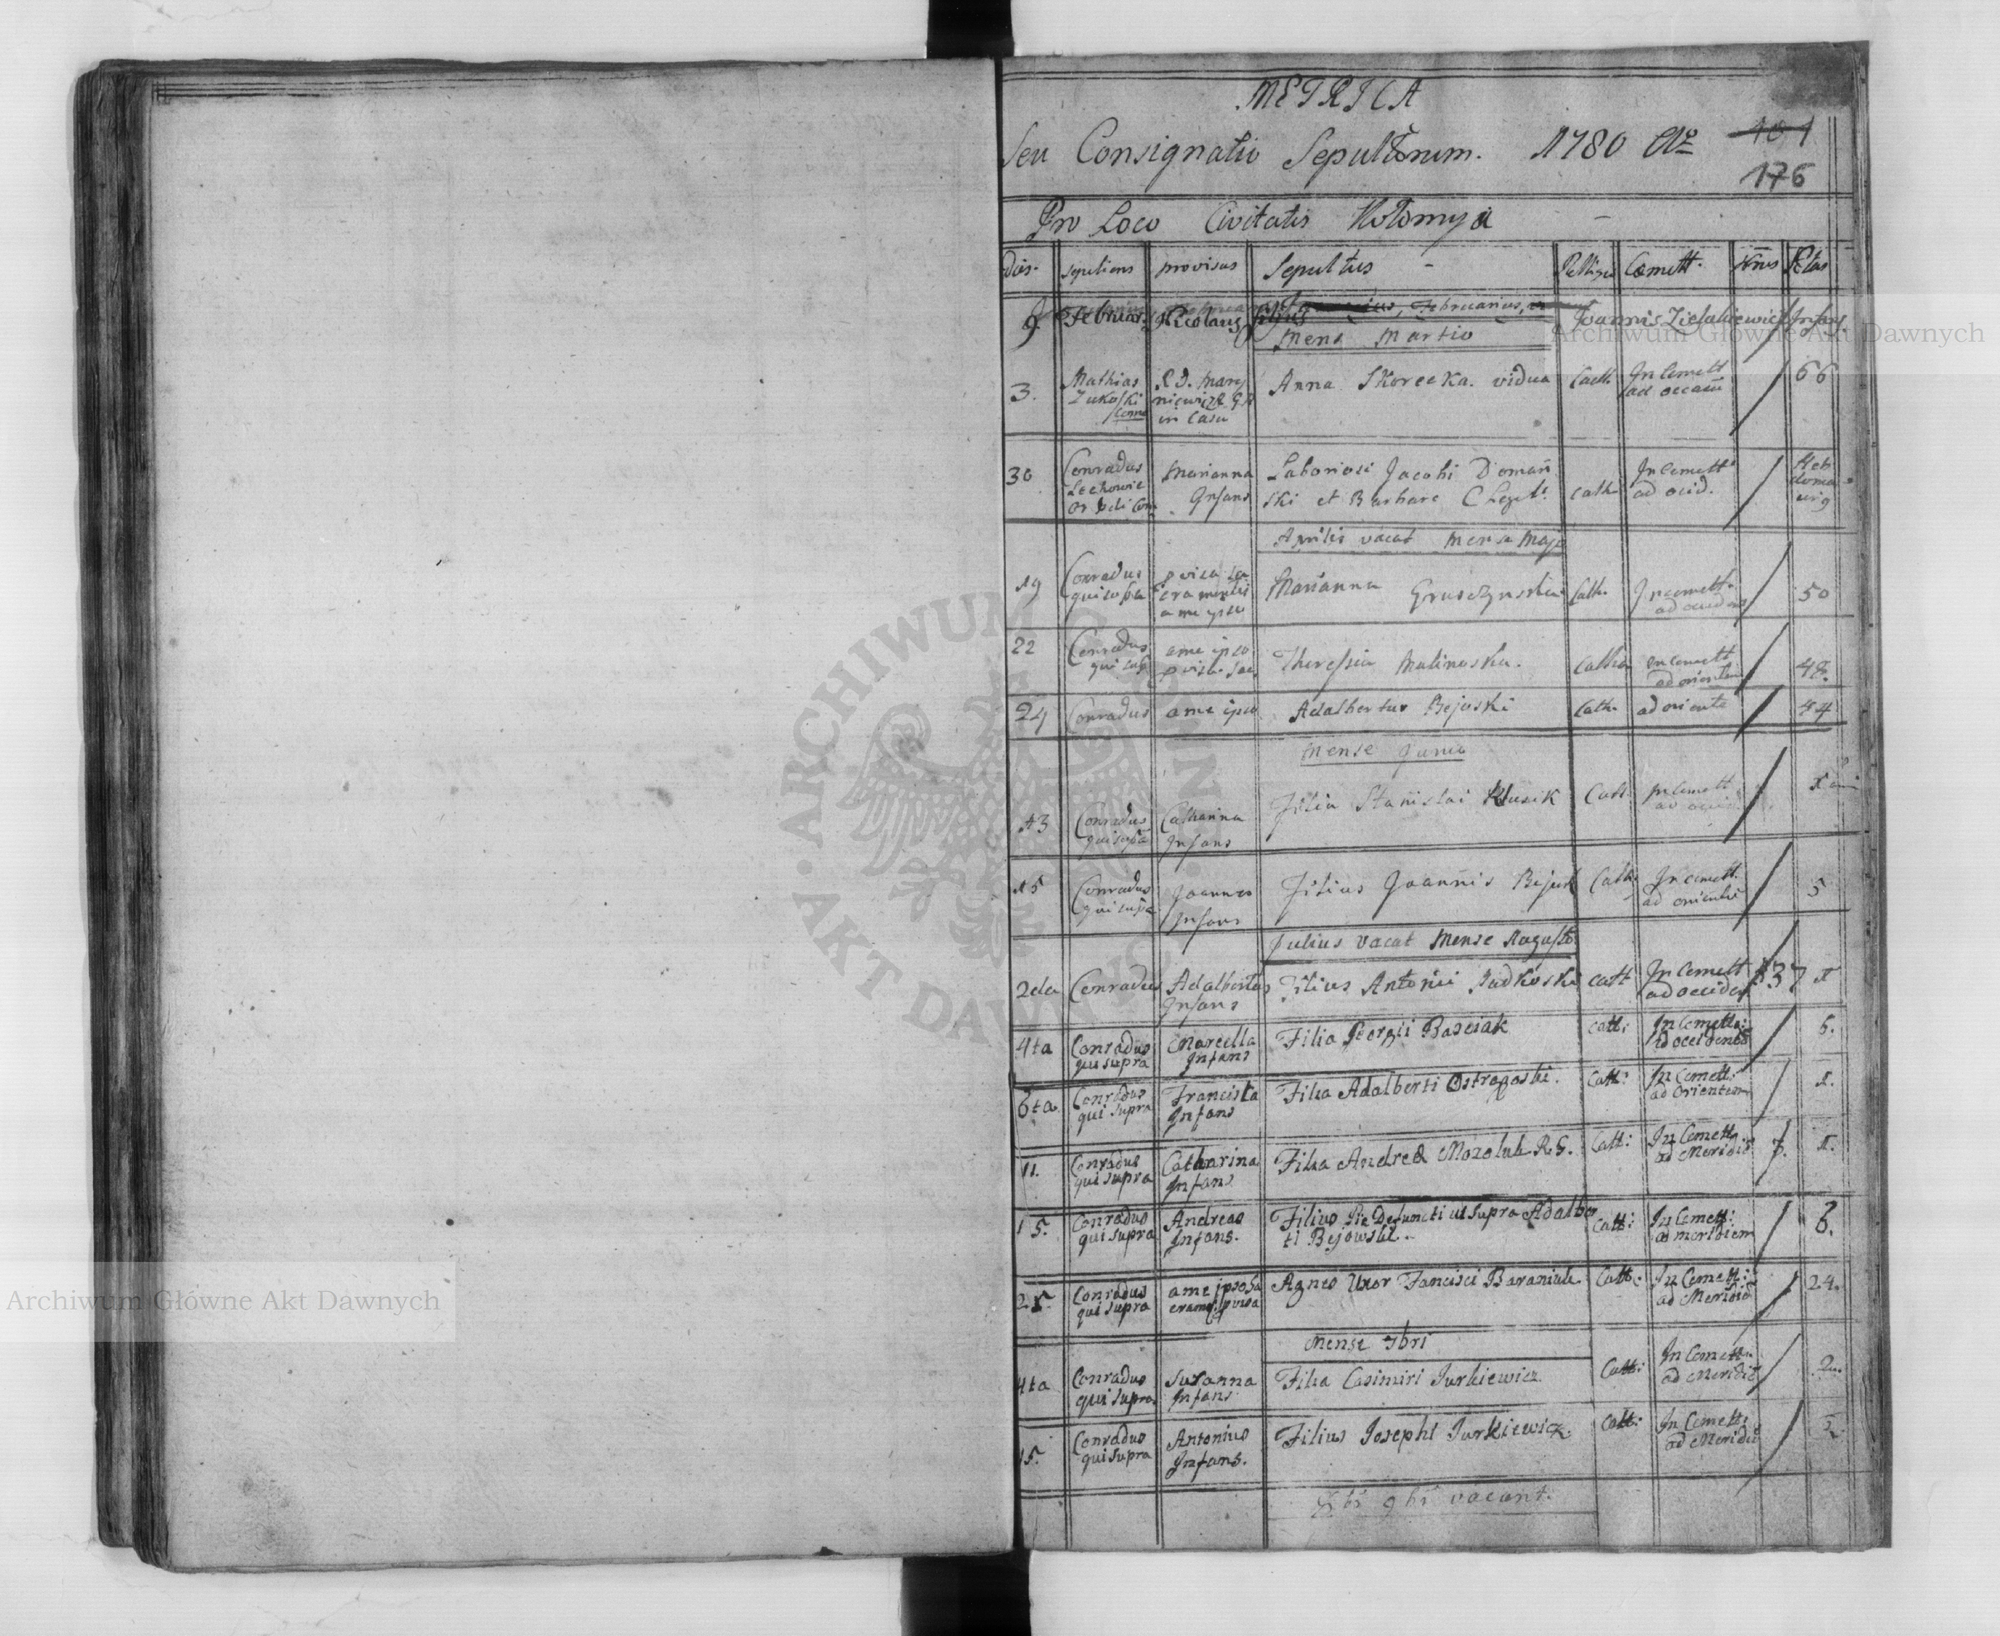 METRICA
Seu Consignatio Sepultorum. 1780 Ao 101
176
Pro Loco Civitatis Kołomyia
Dies. sepeliens provisus Sepultus Religio Cœmett. Nrus Ætas
9. Februar. Nicolaus filius Joannis Infans
Mense Martio
3. Mathias Żukoski R. D. in Casu Anna Skorecka. vidua Cath. In Cemett ad 66
30 Conradus Marianna Infans Laboriosi Jacobi Domań
ski et Barbare C Legit. cath In Cemett ad ocid.
Aprilis vacat Mense Majo
19 Conradus qui supra a me ipso Marianna Gruszczynska Cath. In Cemett. 50
22 Conradus qui sup. a me ipso Theressia Malinoska. Catho In Cemett ad orientem 48.
24 Conradus a me ipso Adalbertus Bejoski Cath. ad oriente 44
Mense Junio
13 Conradus qui supra Catharina Infans Filia Stanislai Cath In Cemett
15 Conradus qui supra Joannes Infans Filius Joannis Cath. In Cemett. ad oriente 5
Julius vacat Mense Augusto
2da Conradus Adalbertus Infans Filius Antonii Sadkoski cath In Cemett ad occiden 137 1
4ta Conradus qui supra Marcella Infans Filia Georgii Basciak cath: In Cemett: ad occidente 6.
6ta Conradus qui supra Francisca Infans Filia Adalberti Ostrogoski. Cath: In Cemett: ad Orientem 1.
11. Conradus qui supra Catharina Infans Filia Andreæ Mozoluk R. G. Cath: In Cemett: ad Meridiē 7. 1.
15. Conradus qui supra Andreas Infans. Filius Pie Defuncti ut supra Adalber
ti Bejowski. Cath: In Cemett: ad meridiem 6.
25. Conradus qui supra a me ipso Agnes Uxor Francisci Baraniuk. Cath: In Cemett: ad Meridiē 24.
Mense 7bri
4ta Conradus qui supra Susanna Infans Filia Casimiri Jurkiewicz Cath: In Cemett: ad Meridiē 2.
15. Conradus qui supra Antonius Infans. Filius Josephi Jurkiewicz. Cath: In Cemett: ad Meridiē 2.
Xbr 9bri vacant.
ARCHIWUM GŁÓWNE AKT DAWNYCH
Archiwum Główne Akt Dawnych
Archiwum Główne Akt Dawnych